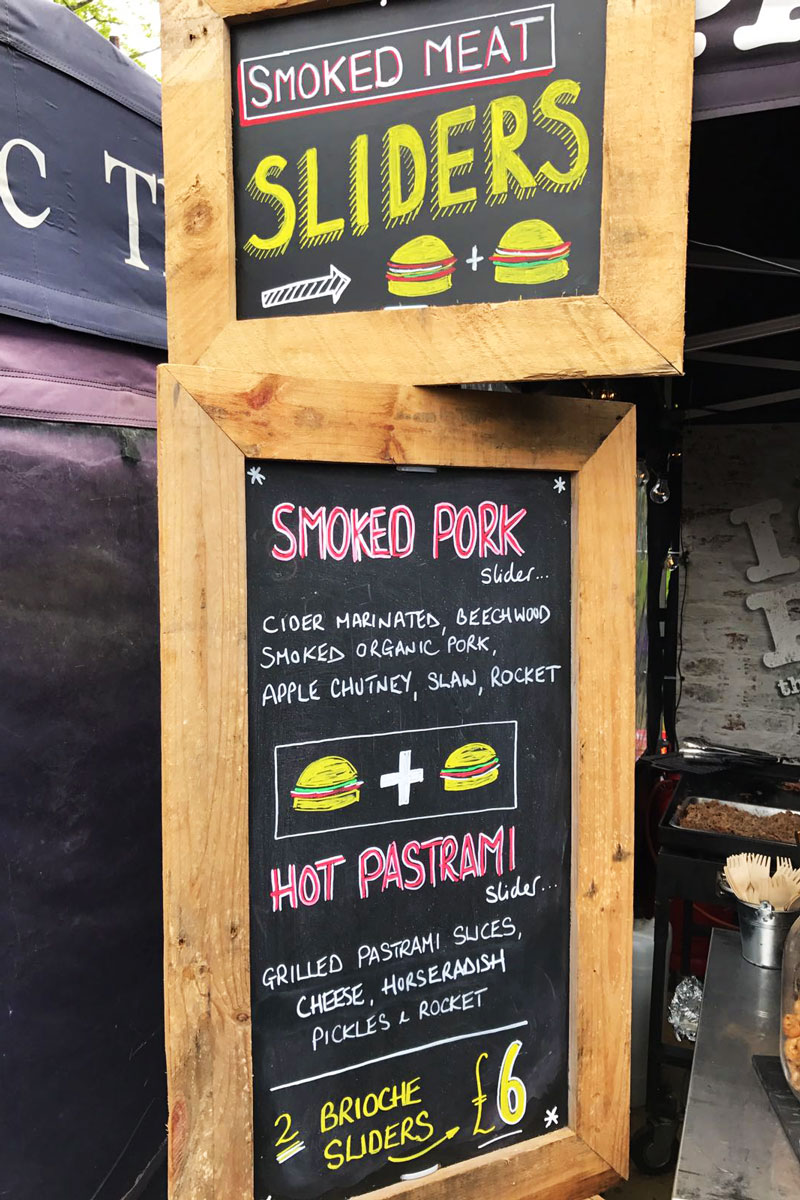 SMOKED MEAT
SLIDERS
+
SMOKED PORK
slider...
CIDER MARINATED, BEECHWOOD
SMOKED ORGANIC PORK,
APPLE CHUTNEY, SLAW, ROCKET
+
HOT PASTRAMI
slider...
GRILLED PASTRAMI SLICES,
CHEESE, HORSERADISH
PICKLES & ROCKET
2 BRIOCHE
SLIDERS
£6
C T
th